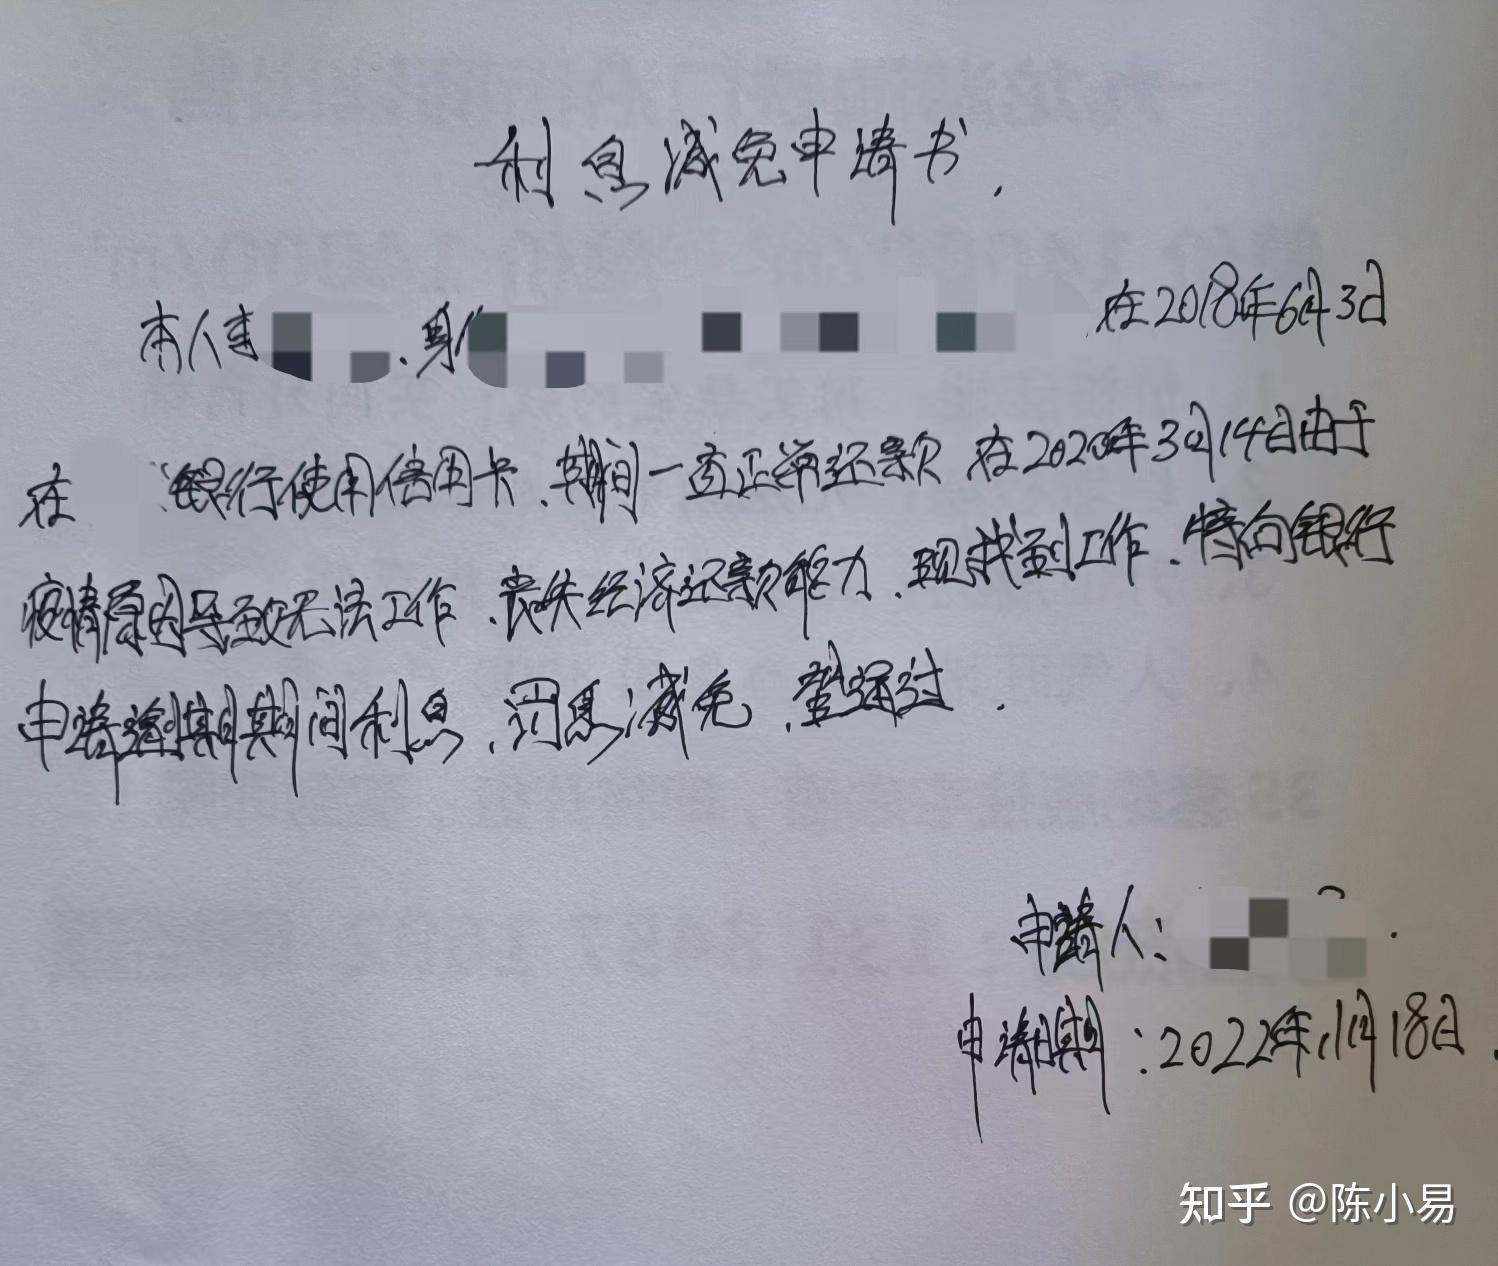 利息减免申请书.
本人李 .身 在2018年6月3日
在 银行使用信用卡.期间一直正常还款 在2020年3月14日由于
疫情原因导致无法工作.丧失经济还款能力.现找到工作.特向银行
申请逾期期间利息.罚息减免.望通过.
申请人: .
申请日期:2022年11月18日.
知乎 @陈小易